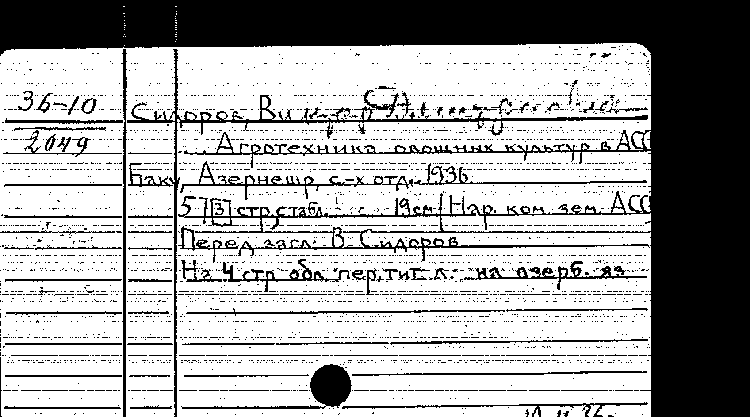 36-10
2049
Сидоров, Виктор
... Агротехника овощных культур в АСС
Баку, Азернешр, с.-х отд., 1936.
57[3] стр, с табл. 19см (Нар. ком. зем. АСС
Перед загл: В. Сидоров
На 4 стр обл. пер. тит. л. на азерб. яз